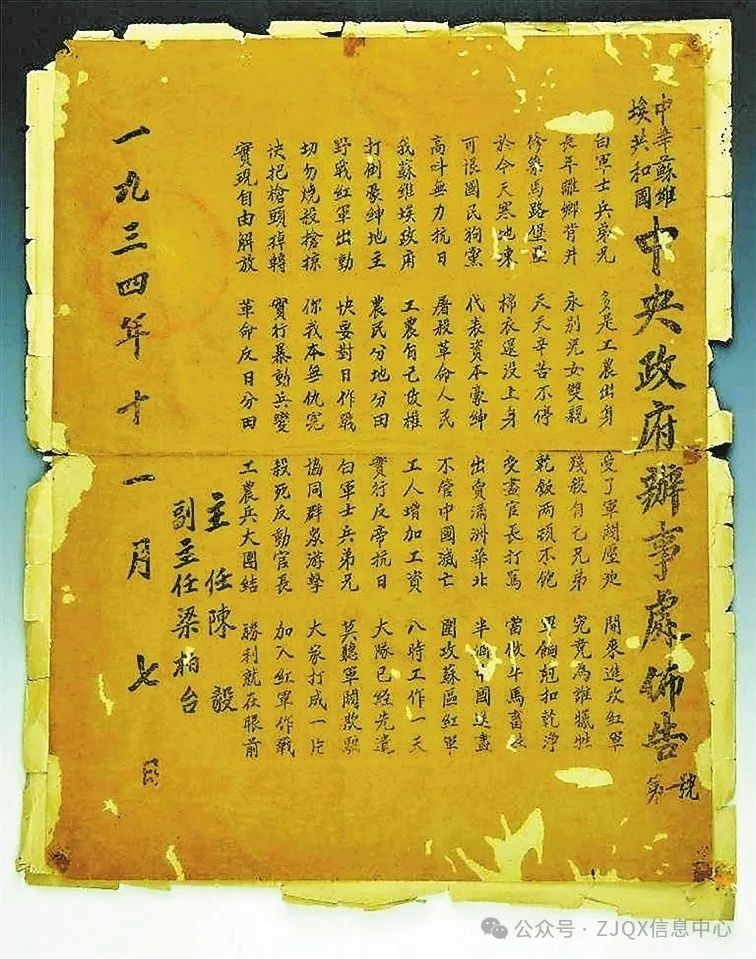 中華蘇維
埃共和國
中央政府辦事處佈告
第一號
白軍士兵弟兄 多是工農出身 受了軍閥壓廹 開來進攻紅軍
長年離鄉背井 永別兒女雙親 殘殺自己兄弟 究竟為誰犧牲
修築馬路堡壘 天天辛苦不停 乾飯两頓不飽 餉尅扣乾淨
於今天寒地凍 棉衣還沒上身 受盡官長打罵 當做牛馬畜牲
可恨國民狗黨 代表資本豪紳 出賣滿洲華北 半國送盡
高呌無力抗日 屠殺革命人民 不管中國滅亡 圍攻蘇區紅軍
我蘇維埃政府 工農自己政權 工人增加工資 八時工作一天
打倒豪紳地主 農民分地分田 實行反帝抗日 大隊已經先遣
野戰紅軍出動 快要對日作戰 白軍士兵弟兄 莫聽軍閥欺騙
切勿燒殺搶掠 你我本無仇寃 協同群眾游擊 大家打成一片
快把槍頭掉轉 實行暴動兵變 殺死反動官長 加入紅軍作戰
實現自由解放 革命反日分田 工農兵大團結 勝利就在眼前
主任陳毅
副主任梁柏台
一九三四年十一月七日
公众号·ZJQX信息中心